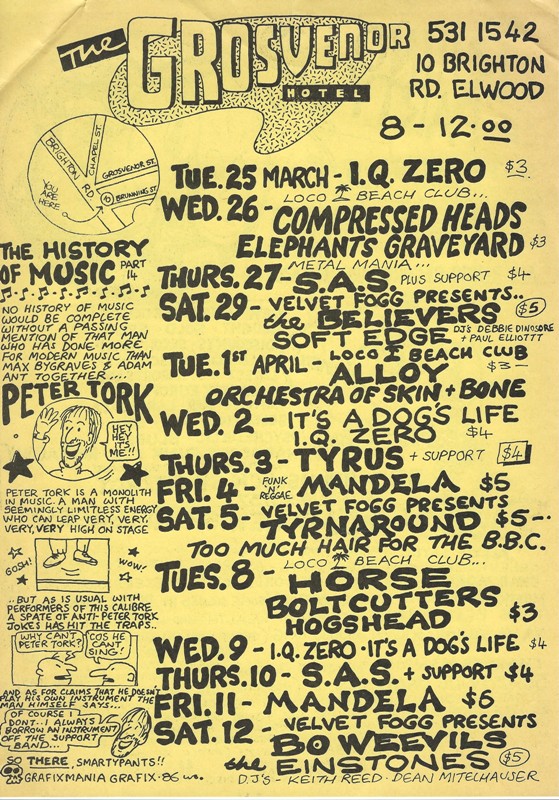 The
GROSVENOR
HOTEL
531 1542
10 BRIGHTON
RD. ELWOOD
8-12.00
BRIGHTON RD
CHAPEL ST.
GROSVENOR ST.
BRUNNING ST.
YOU ARE HERE
TUE. 25 MARCH - I.Q. ZERO $3
LOCO BEACH CLUB...
WED. 26 - COMPRESSED HEADS
ELEPHANTS GRAVEYARD $3
METAL MANIA...
THURS. 27 - S.A.S. PLUS SUPPORT $4
SAT. 29 - VELVET FOGG PRESENTS..
the BELIEVERS $5
SOFT EDGE DJ'S DEBBIE DINOSORE
+ PAUL ELLIOTTT
TUE. 1ST APRIL - LOCO BEACH CLUB
ALLOY $3-
ORCHESTRA OF SKIN + BONE
WED. 2 - IT'S A DOG'S LIFE
I.Q. ZERO $4
THURS. 3 - TYRUS + SUPPORT $4
FRI. 4 - FUNK 'N' REGGAE MANDELA $5
SAT. 5 - VELVET FOGG PRESENTS
TYRNAROUND $5-.
TOO MUCH HAIR FOR THE B.B.C.
LOCO BEACH CLUB...
TUES. 8 - HORSE
BOLTCUTTERS
HOGSHEAD $3
WED. 9 - I.Q. ZERO · IT'S A DOG'S LIFE $4
THURS. 10 - S.A.S. + SUPPORT $4
FRI. 11 - MANDELA $6
SAT. 12 - VELVET FOGG PRESENTS
BO WEEVILS
the EINSTONES $5
D.J'S - KEITH REED · DEAN MITELHAUSER
THE HISTORY
OF MUSIC PART 14
NO HISTORY OF MUSIC
WOULD BE COMPLETE
WITHOUT A PASSING
MENTION OF THAT MAN
WHO HAS DONE MORE
FOR MODERN MUSIC THAN
MAX BYGRAVES & ADAM
ANT TOGETHER....
PETER TORK
HEY
HEY
ITS
ME!!
PETER TORK IS A MONOLITH
IN MUSIC. A MAN WITH
SEEMINGLY LIMITLESS ENERGY
WHO CAN LEAP VERY, VERY,
VERY, VERY HIGH ON STAGE
GOSH!
WOW!
..BUT AS IS USUAL WITH
PERFORMERS OF THIS CALIBRE
A SPATE OF ANTI-PETER TORK
JOKES HAS HIT THE TRAPS...
WHY CAN'T
PETER TORK?
COS HE
CAN'T
SING!
AND AS FOR CLAIMS THAT HE DOESN'T
PLAY HIS OWN INSTRUMENT THE
MAN HIMSELF SAYS...
OF COURSE I
DONT.. I ALWAYS
BORROW AN INSTRUMENT
OFF THE SUPPORT
BAND...
SO THERE, SMARTYPANTS!!
GRAFIXMANIA GRAFIX · 86